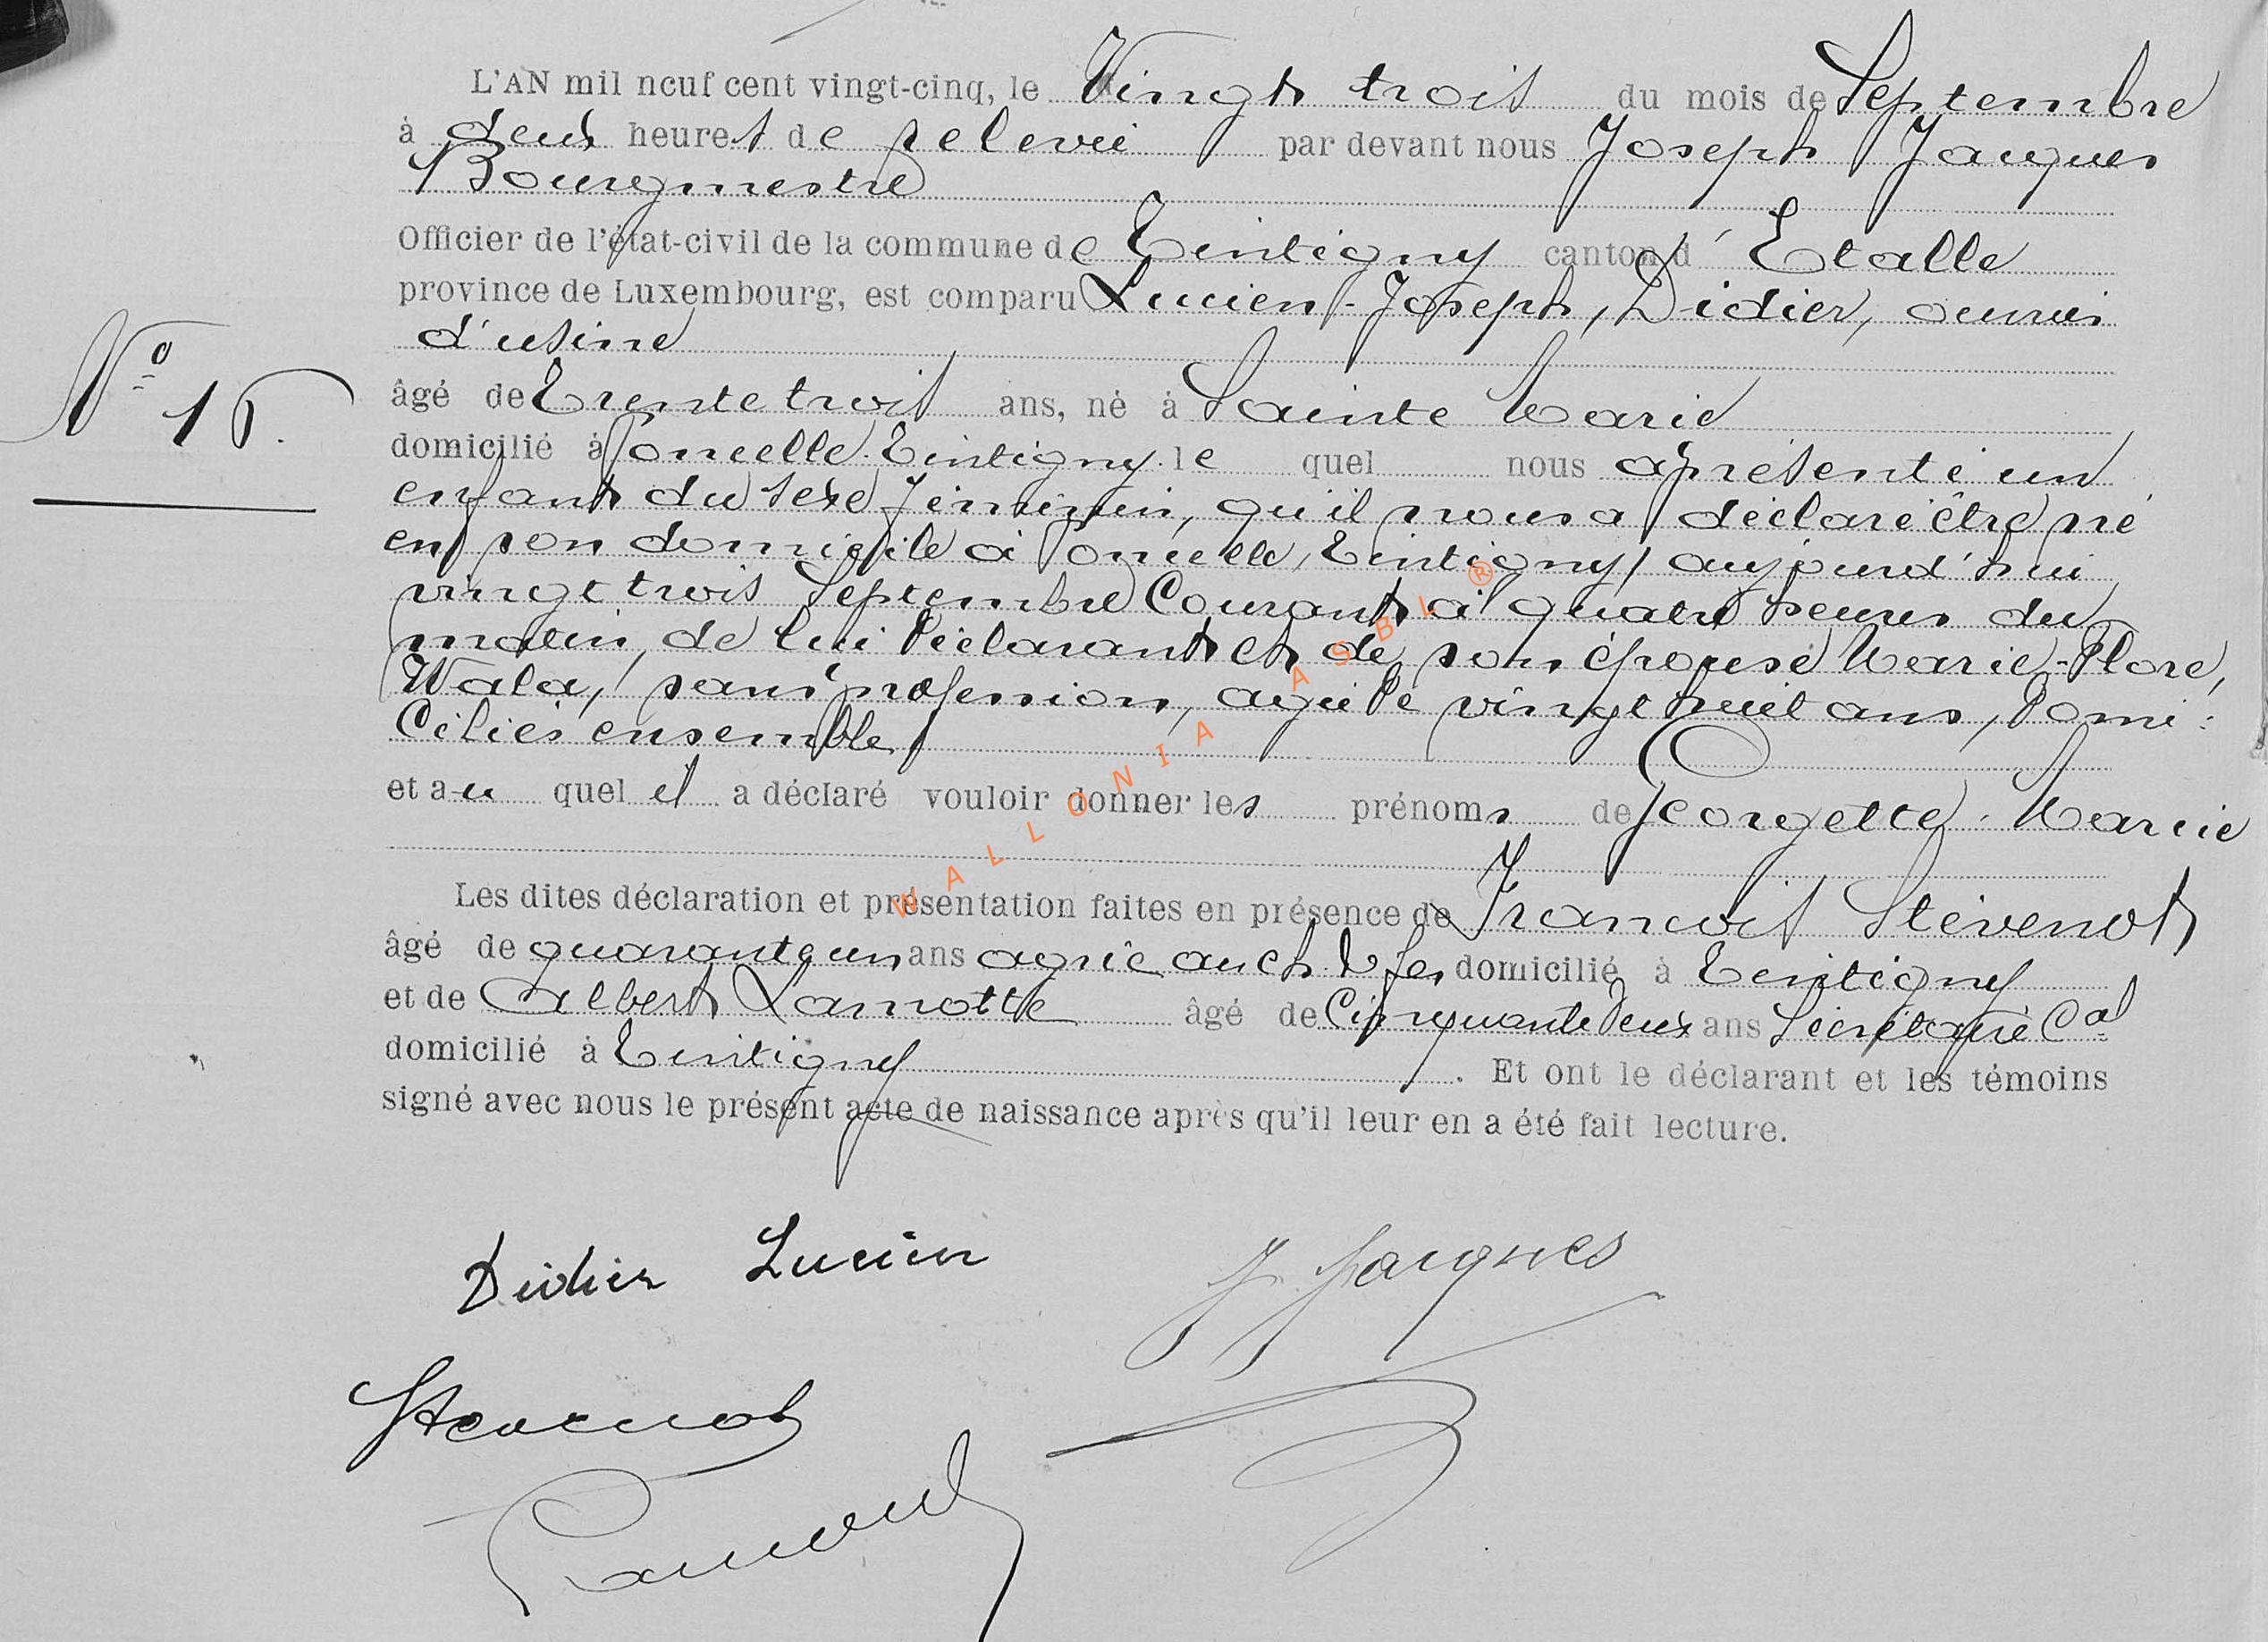 L'AN mil neuf cent vingt-cinq, le Vingt trois du mois de Septembre
à deux heures de relevée par devant nous Joseph Jacques
Bourgmestre
Officier de l'état-civil de la commune de Tintigny canton d'Etalle
province de Luxembourg, est comparu Lucien-Joseph, Didier, ouvrier
d'usine
âgé de Trente trois ans, né à Sainte Marie
N° 16.
domicilié à Poncelle-Tintigny. le quel nous a présenté un
enfant du sexe féminin, qu'il nous a déclaré être né
en son domicile à Poncelle, Tintigny, aujourd'hui
vingt trois Septembre Courant à quatre heures du
matin, de lui déclarant et de son épouse Marie-Flore,
Wala, sans profession, agée de vingt huit ans, domi:
ciliés ensemble
et au quel il a déclaré vouloir donner les prénoms de Georgette-Marie
Les dites déclaration et présentation faites en présence de François Stévenot
âgé de quarante un ans domicilié à Tintigny
et de Albert Lamotte âgé de Cinquante deux ans Secrétaire Cal
domicilié à Tintigny. Et ont le déclarant et les témoins
signé avec nous le présent acte de naissance après qu'il leur en a été fait lecture.
Didier Lucien
J Jacques
Stevenot
WALLONIA ASBL ®